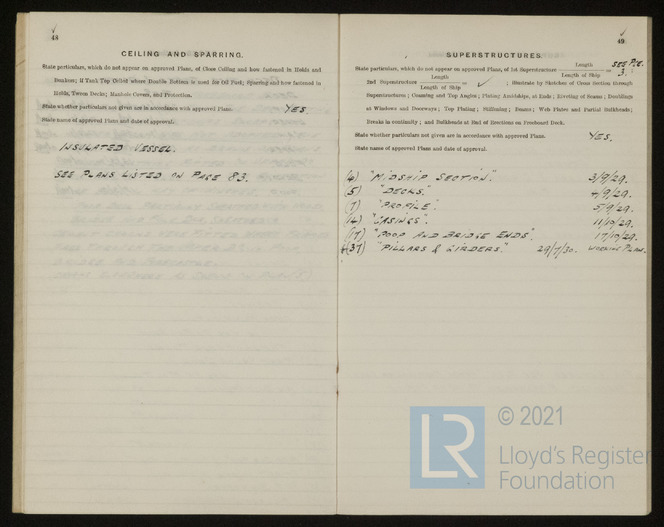 48
CEILING AND SPARRING.
State particulars, which do not appear on approved Plans, of Close Ceiling and how fastened in Holds and
Bunkers; if Tank Top Ceiled where Double Bottom is used for Oil Fuel; Sparring and how fastened in
Holds, Tween Decks; Manhole Covers, and Protection.
State whether particulars not given are in accordance with approved Plans. YES
State name of approved Plans and date of approval.
INSULATED VESSEL.
SEE PLANS LISTED ON PAGE 83.
49
SUPERSTRUCTURES.
SEE P/E.
State particulars, which do not appear on approved Plans, of 1st Superstructure Length / Length of Ship = 3.
2nd Superstructure Length / Length of Ship = ✓ ; illustrate by Sketches of Cross Section through
Superstructures; Coaming and Top Angles; Plating Amidships, at Ends; Riveting of Seams; Doublings
at Windows and Doorways; Top Plating; Stiffening; Beams; Web Plates and Partial Bulkheads;
Breaks in continuity; and Bulkheads at End of Erections on Freeboard Deck.
State whether particulars not given are in accordance with approved Plans. YES.
State name of approved Plans and date of approval.
(4) "MIDSHIP SECTION". 3/9/29.
(5) "DECKS." 4/9/29.
(7) "PROFILE". 5/9/29.
(14) "CASINGS". 11/10/29.
(17) "POOP AND BRIDGE ENDS". 17/10/29.
(37) "PILLARS & GIRDERS." 29/7/30. WORKING PLANS.
LR
© 2021
Lloyd's Register
Foundation